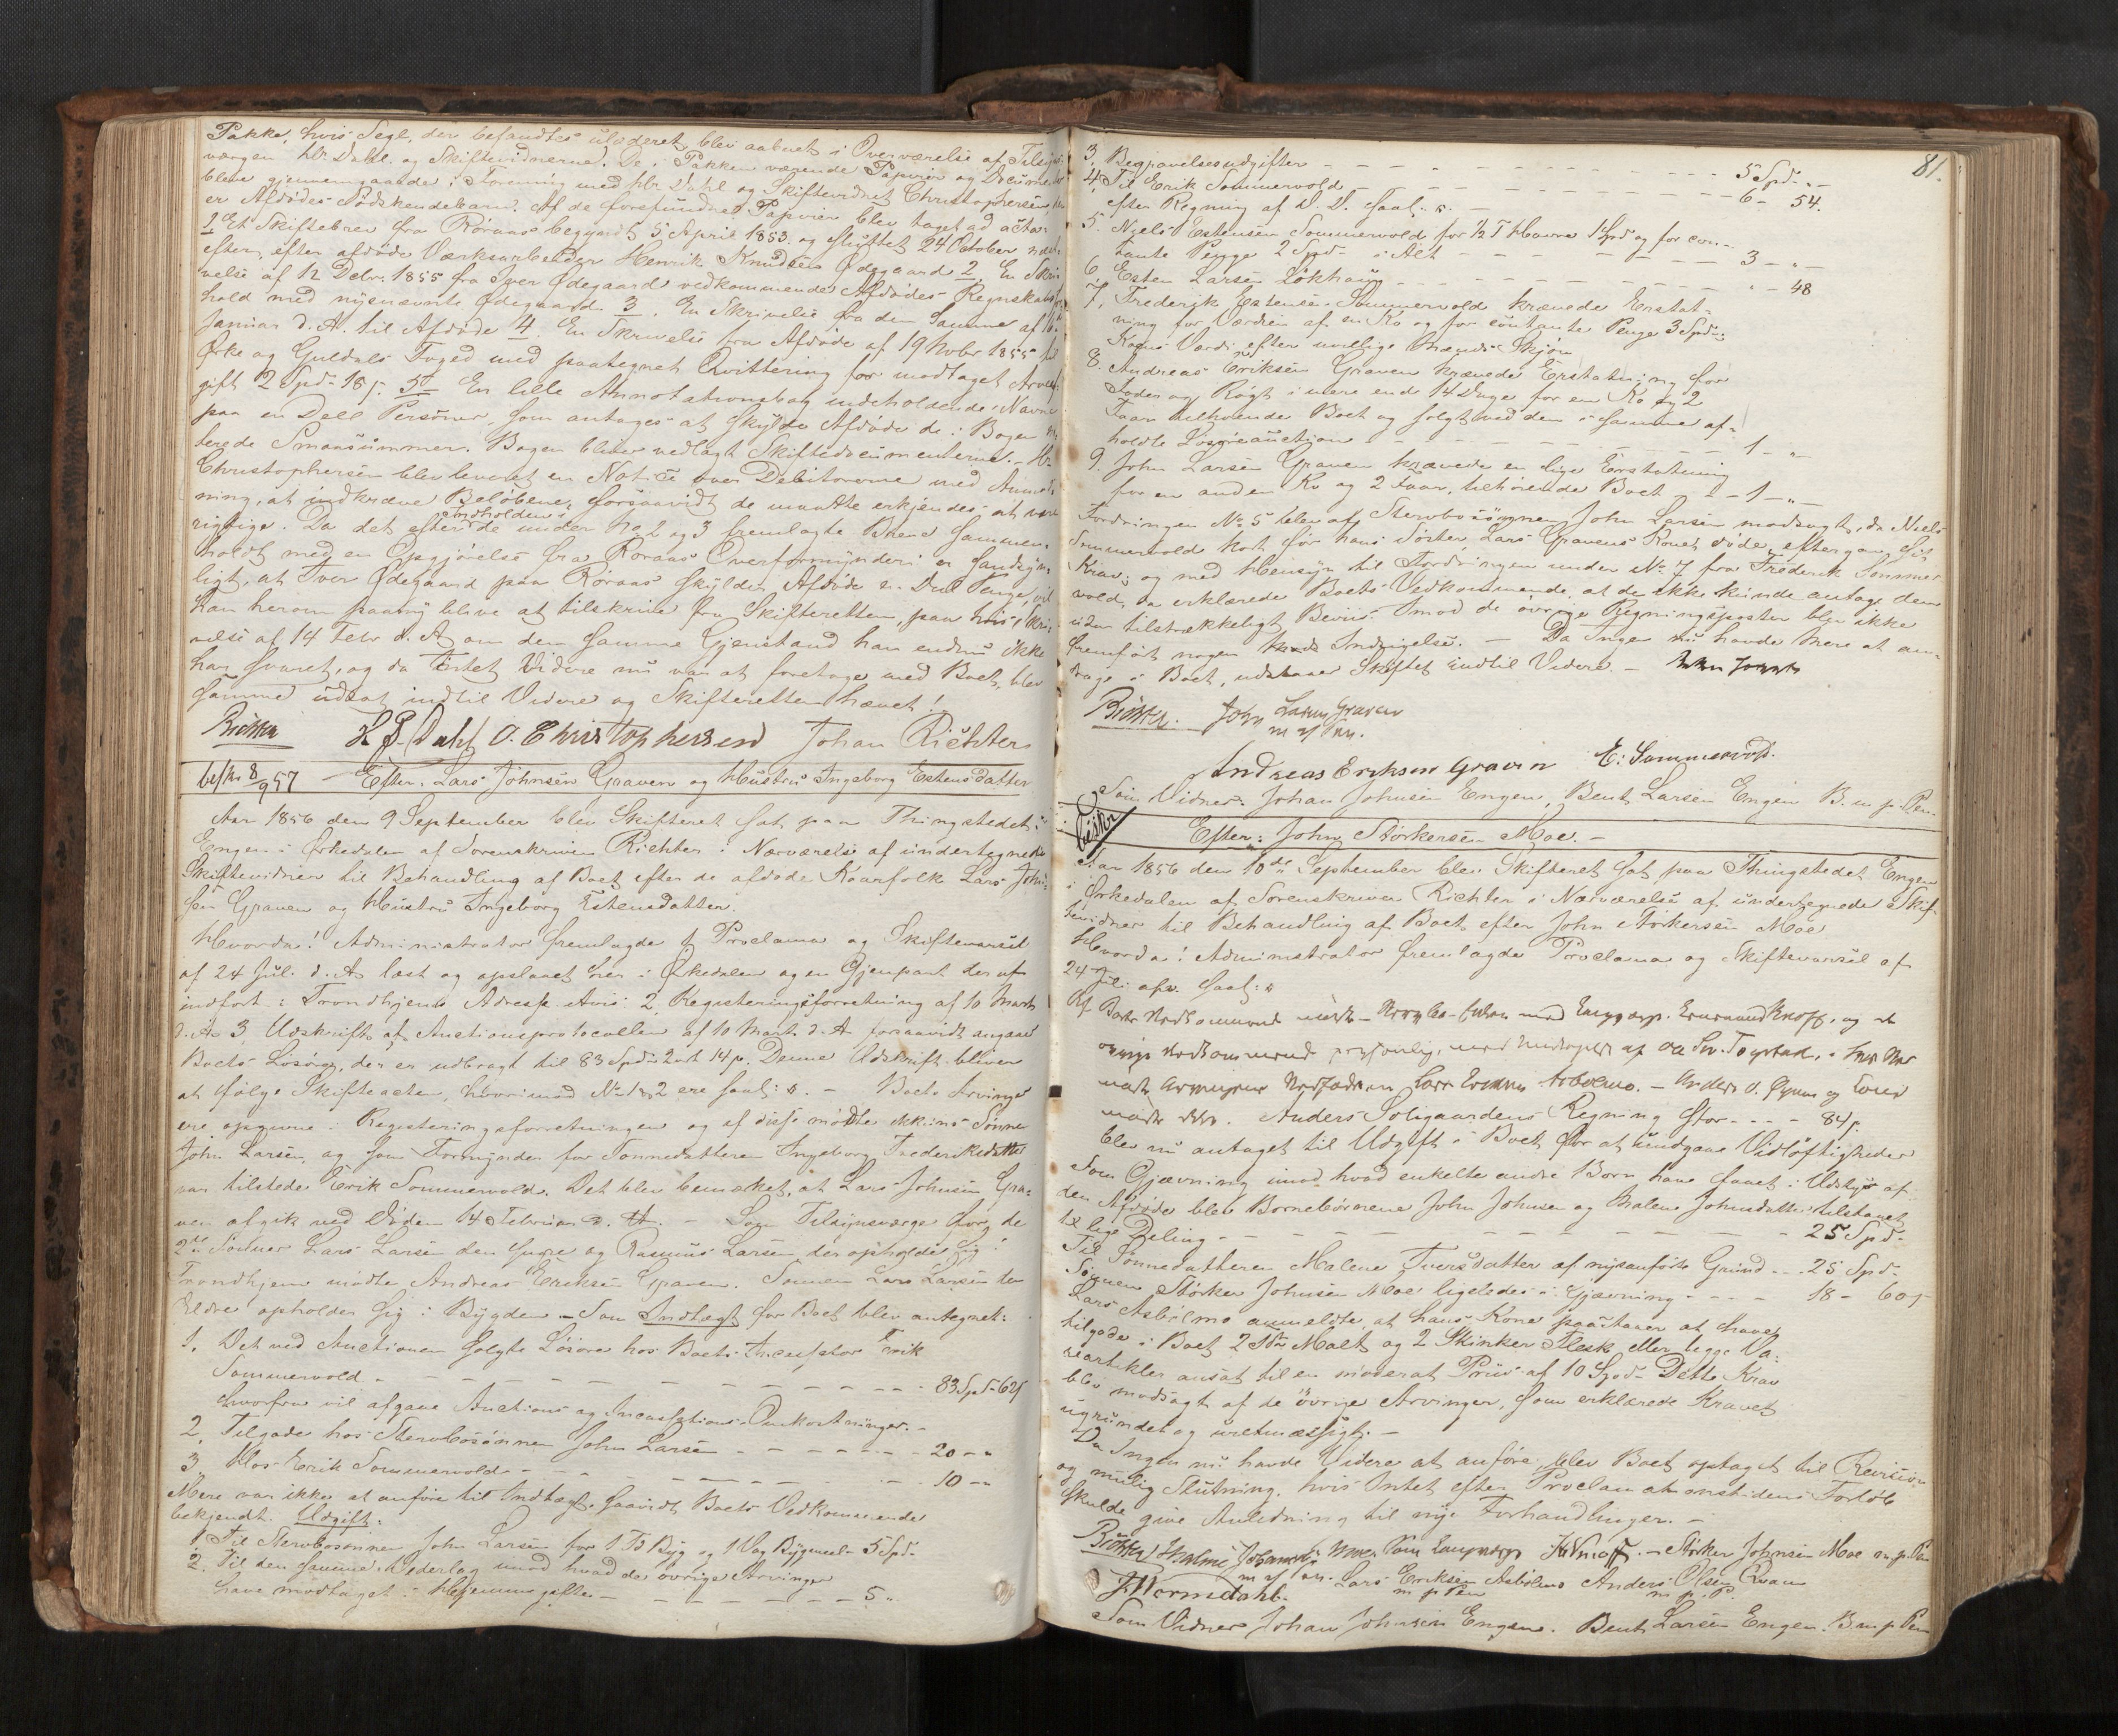 Pakke, hvis Segl, der befandtes ulæderet, blev aabnet i Overværelse af Tilsyns-
værgen Hr Dahl og Skiftevidnerne. De i Pakken værende Papirer og Documenter
bleve gjennemgaaede i Forening med Hr. Dahl og Skiftevidnet Christophersen, der
er Afdødes Sødskendebarn. Af de forefundne Papirer blev taget ad acta:
1 Et Skiftebrev fra Röraas begyndt 5 April 1853 og sluttet 24 October næst-
efter, efter afdøde Værksarbeider Henrik Knudsen Ødegaard 2. En Skri-
velse af 12 Decbr. 1855 fra Iver Ødegaard vedkommende Afdødes Regnskabsfor-
hold med nysnævnte Ødegaard. 3. En Skrivelse fra den Samme af 16
Januar d. A. til Afdøde 4. En Skrivelse fra Afdøde af 19 Novbr 1855 til
Ørke og Guldals Foged med paategnet Qvittering for modtaget Arveaf-
gift 2 Spd- 18 s. 5 En lille Annotationsbog indeholdende Navne
paa en Deel Personer, som antages at skylde Afdøde de i Bogen no-
terede Smaasummer. Bogen bliver vedlagt Skiftedocumenterne. Hr.
Christophersen blev leveret en Notice over Debitorerne med Anmod-
ning, at indkræve Beløbene, forsaavidt de maatte erkjendes at være
rigtige. Da det efter Indholden af de under No 2 og 3 fremlagte Breve sammen-
holdt med en Opgjørelse fra Roraas Overformynderi er sandsyn-
ligt, at Iver Ødegaard paa Röraas skylder Afdøde en Deel Penge, vil
han herom paany blive at tilskrive fra Skifteretten, paa hvis Skri-
velse af 14 Febr d. A. om den samme Gjenstand han endnu ikke
har svaret, og da Intet Videre nu var at foretage med Boet, blev
samme udsat indtil Videre og Skifteretten hævet!
Richter H P. Dahl O. Christophersen Johan Richter
besk 8/9 57 — Efter. Lars Johnsen Graven og Hustru Ingeborg Estensdatter
Aar 1856 den 9 September blev Skifteret sat paa Thingstedet
Engen i Ørkedalen af Sorenskriver Richter i Nærværelse af undertegnede
Skiftevidner til Behandling af Boet efter de afdøde Kaarfolk Lars John-
sen Graven og Hustru Ingeborg Estensdatter.
Hvorda! Administrator fremlagde 1 Proclama og Skiftevarsel
af 24 Jul. d. A. læst og opslaaet her i Ørkedalen og en Gjenpart deraf
indført i Trondhjems Adresse Avis: 2. Registeringsforretning af 10 Marts
d. A. 3. Udskrift af Auctionsprotocollen af 10 Mart. d. A. forsaavidt angaar
Boets Løsöre, der er udbragt til 83 Spd 2 ort 14 s. Denne Udskrift bliver
at følge Skifteacten, hvorimod No 1 & 2 ere saal: — Boets Arvinger
ere opgivne i Registeringsforretningen og af disse mødte ikkuns Sønnen
John Larsen, og som Formynder for Sønnedatteren Ingeborg Frederiksdatter
var tilstede Erik Sommervold. Det blev bemærket, at Lars Johnsen Gra-
ven afgik ved Døden 14 Februar d. A. — Som Tilsynsværge for de
2de Sönner Lars Larsen den yngre og Rasmus Larsen, der opholde sig i
Trondhjem mødte Andreas Eriksen Graven. Sønnen Lars Larsen den
Eldre opholder sig i Bygden. — Som Indtægt for Boet blev antegnet:
1. Det ved Auctionen solgte Lösöre hos Boets Incassator Erik
Sommervold - - - 83 Spd- 62 s
hvorfra vil afgaae Auctions og Incassations Omkostninger. —
2. Tilgode hos Stervbosønnen John Larsen - - - 20 - „
3 Hos Erik Sommervold - - - 10 - „
Mere var ikke at anföre til Indtægt, saavidt Boets Vedkommende
bekjendt. Udgift:
1. Til Stervbosønnen John Larsen for 1 Td Byg og 1 Vog Bygmeel - 5 Spd-
2. Til den samme Vederlag imod hvad de övrige Arvinger
have modtaget i Hjemmegifte - - - 5 „
81.
3. Begravelsesudgifter - - - 5 Spd- „ -
4. Til Erik Sommervold
efter Regning af D. D. saal: - - - 6 - 54.
5. Niels Estensen Sommervold for ½ T Havre 1 Spd og for con-
tante Penge 2 Spd- i Alt - - - 3 - „ -
6. Esten Larsen Løkhaug - - - „ - 48
7. Frederik Estensen Sommervold krævede Erstat-
ning for Værdien af en Ko og for contante Penge 3 Spd-
Koens Værdi efter uvillige Mænds Skjön
8. Andreas Eriksen Graven krævede Erstatning for
Foder og Røgt i mere end 14 Dage for en Ko og 2
Faar tilhörende Boet og solgt ved den i samme af-
holdte Lösöreauction - - - 1 - „
9. John Larsen Graven krævede en lige Erstatning
for en anden Ko og 2 Faar, tilhörende Boet - - 1 - „ -
Fordringen No 5 blev af Stervbosönnen John Larsen modsagt, da Niels
Sommervold kort för hans Söster Lars Gravens Kones Döde eftergav sit
Krav; og med Hensyn til Fordringen under No 7 fra Frederik Sommer-
vold, da erklærede Boets Vedkommende, at de ikke kunde antage den
uden tilstrækkeligt Beviis. Imod de övrige Regningsposter blev ikke
fremfört nogen Indsigelse. — Da Ingen nu havde Mere at an-
drage i Boet, udsættes Skiftet indtil Videre —
Richter. John Larsen Graven
m p Pen.
Andreas Eriksen Graven E: Sommervold.
Som Vidner: Johan Johnsen Engen, Bent Larsen Engen B. m. p. Pen.
beskr Efter: John Störkersen Moe. —
Aar 1856 den 10de September blev Skifteret sat paa Thingstedet Engen
i Ørkedalen af Sorenskriver Richter i Nærværelse af undertegnede Skif-
tevidner til Behandling af Boet efter John Störkersen Moe
Hvorda! Administrator fremlagde Proclama og Skiftevarsel af
24 Jul: d. A. saal:
Af Boets Vedkommende mödte med Laugværge Knoff, og de
øvrige Vedkommende personlig, med Undtagelse af
mödte Lars Eriksen Asbölmo. — Anders O. og
mödte ikke. Anders Soligaardens Regning stor - - - 84 s.
blev nu antaget til Udgift i Boet for at undgaae Vidløftigheder
Som Gjævning imod hvad enkelte andre Börn have faaet i Udstyr af
den Afdøde blev Bornebörnene John Johnsen og Malene Johnsdatter tilstaaet
til lige Deling - - - 25 Spd-
Til Sønnedatteren Malene Iversdatter af nysanførte Grund - - 25 Spd-
Sönnen Störker Johnsen Moe ligeledes i Gjævning - - - 18 - 60 s
Lars Asbölmo anmeldte, at hans Kone paastaaer at have
tilgode i Boet 2 Tdr Malt og 2 Skinker Flesk, eller begge Va-
reartikler ansat til en moderat Priis af 10 Spd- Dette Krav
blev modsagt af de övrige Arvinger, som erklærede Kravet
ugrundet og uretmæssigt. —
Da Ingen nu havde Videre at anföre, blev Boet optaget til Revision
og mulig Slutning, hvis Intet efter Proclamationstidens Forlöb
skulde give Anledning til nye Forhandlinger. —
Richter Moe Som Laugværge Knoff. — Störker Johnsen Moe m. p. Pen
m p Pen. Lars Eriksen Asbölmo Anders Olsen Qvam
J Wormdahl. m p Pen m. p. P.
Som Vidner Johan Johnsen Engen. Bent Larsen Engen. B m p Pen